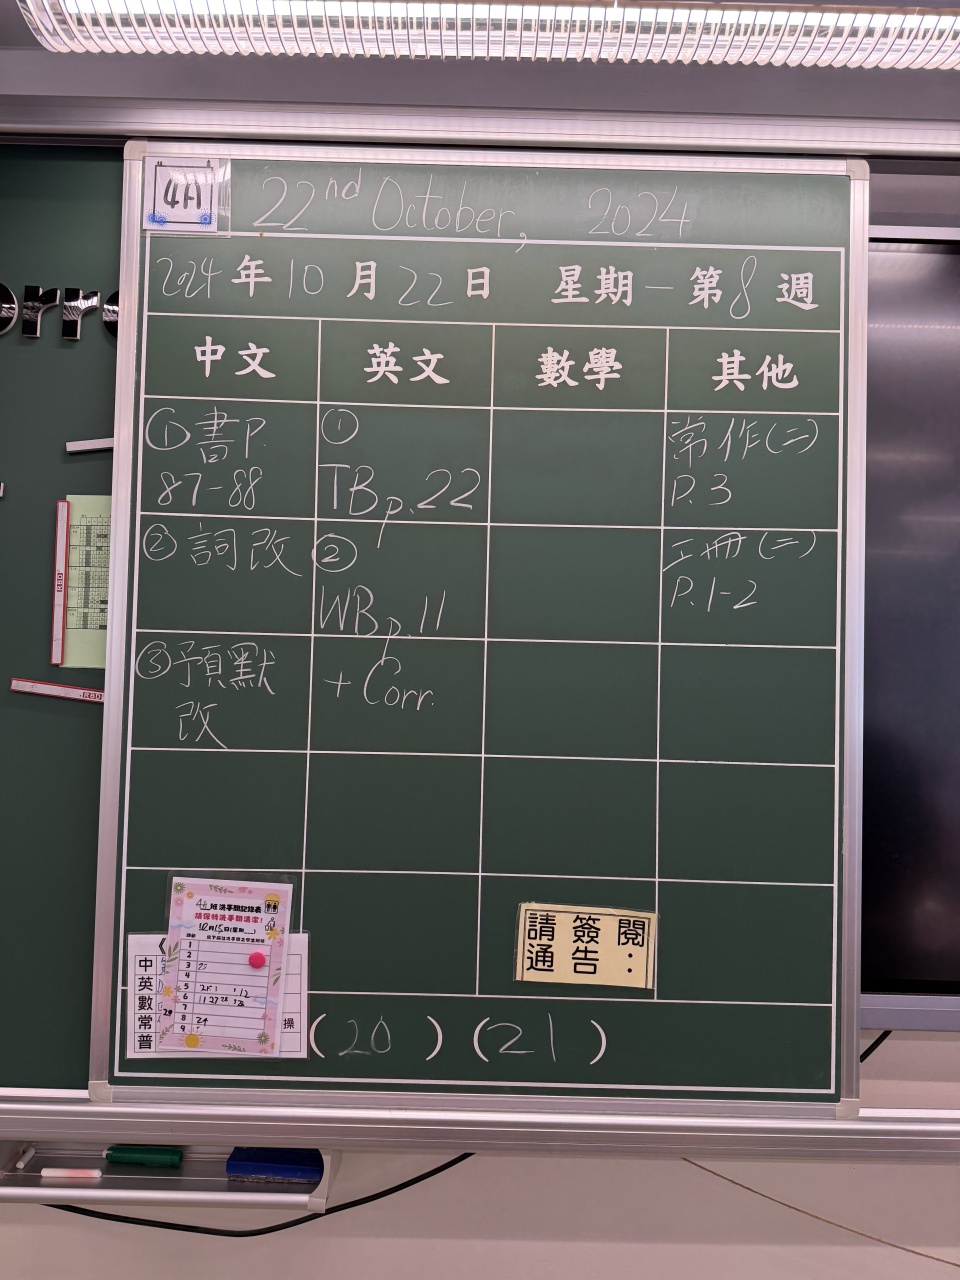 4A
22nd October, 2024
2024年10月22日 星期一 第8週
中文 英文 數學 其他
①書P.
87-88
②詞改
③預默
改
①
TB p.22
②
WB p.11
+ Corr.
常作(二)
P.3
工冊(二)
P.1-2
請簽閱
通告：
班洗手間記錄表
請保持洗手間清潔！
1
2
3
4
5
6
7
8 24
9
中
英
數
常
普
操
(20) (21)
orr